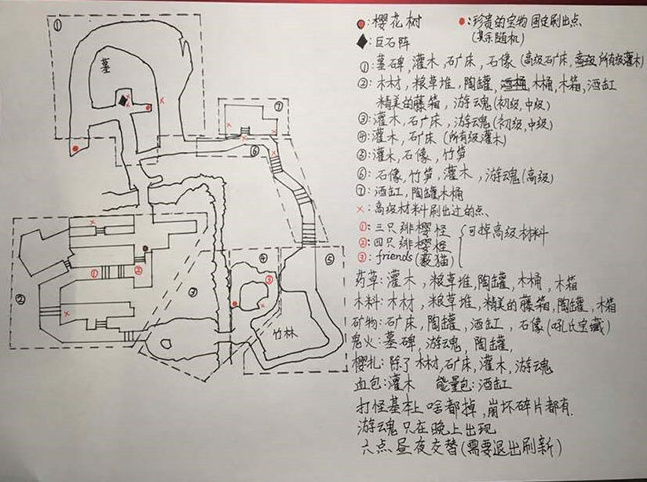 ①
墓
⑦
⑥
④
⑤
③
②
①
②
③
竹林
:樱花树
:珍贵的宝物 固定刷出点
(其余随机)
:巨石阵
①:墓碑,灌木,矿床,石像(高级矿床,所有级灌木)
②:木材,粮草堆,陶罐,木桶,木箱,酒缸
精美的藤箱,游魂(初级,中级)
③:灌木,矿床,游魂(初级,中级)
④:灌木,矿床(所有级灌木)
⑤:灌木,石像,竹笋
⑥:石像,竹笋,灌木,游魂(高级)
⑦:酒缸,陶罐木桶
×:高级材料刷出过的点、
①:三只绯樱怪
可掉高级材料
②:四只绯樱怪
③:friends(薮猫)
药草:灌木,粮草堆,陶罐,木桶,木箱
木料:木材,粮草堆,精美的藤箱,陶罐,木箱
矿物:石矿床,陶罐,酒缸,石像(吼氏宝藏)
鬼火:墓碑,游魂,陶罐,
樱札:除了木材,矿床,灌木,游魂
血包:灌木 能量包:酒缸
打怪基本上啥都掉,崩坏碎片都有.
游魂只在晚上出现
六点昼夜交替(需要退出刷新)